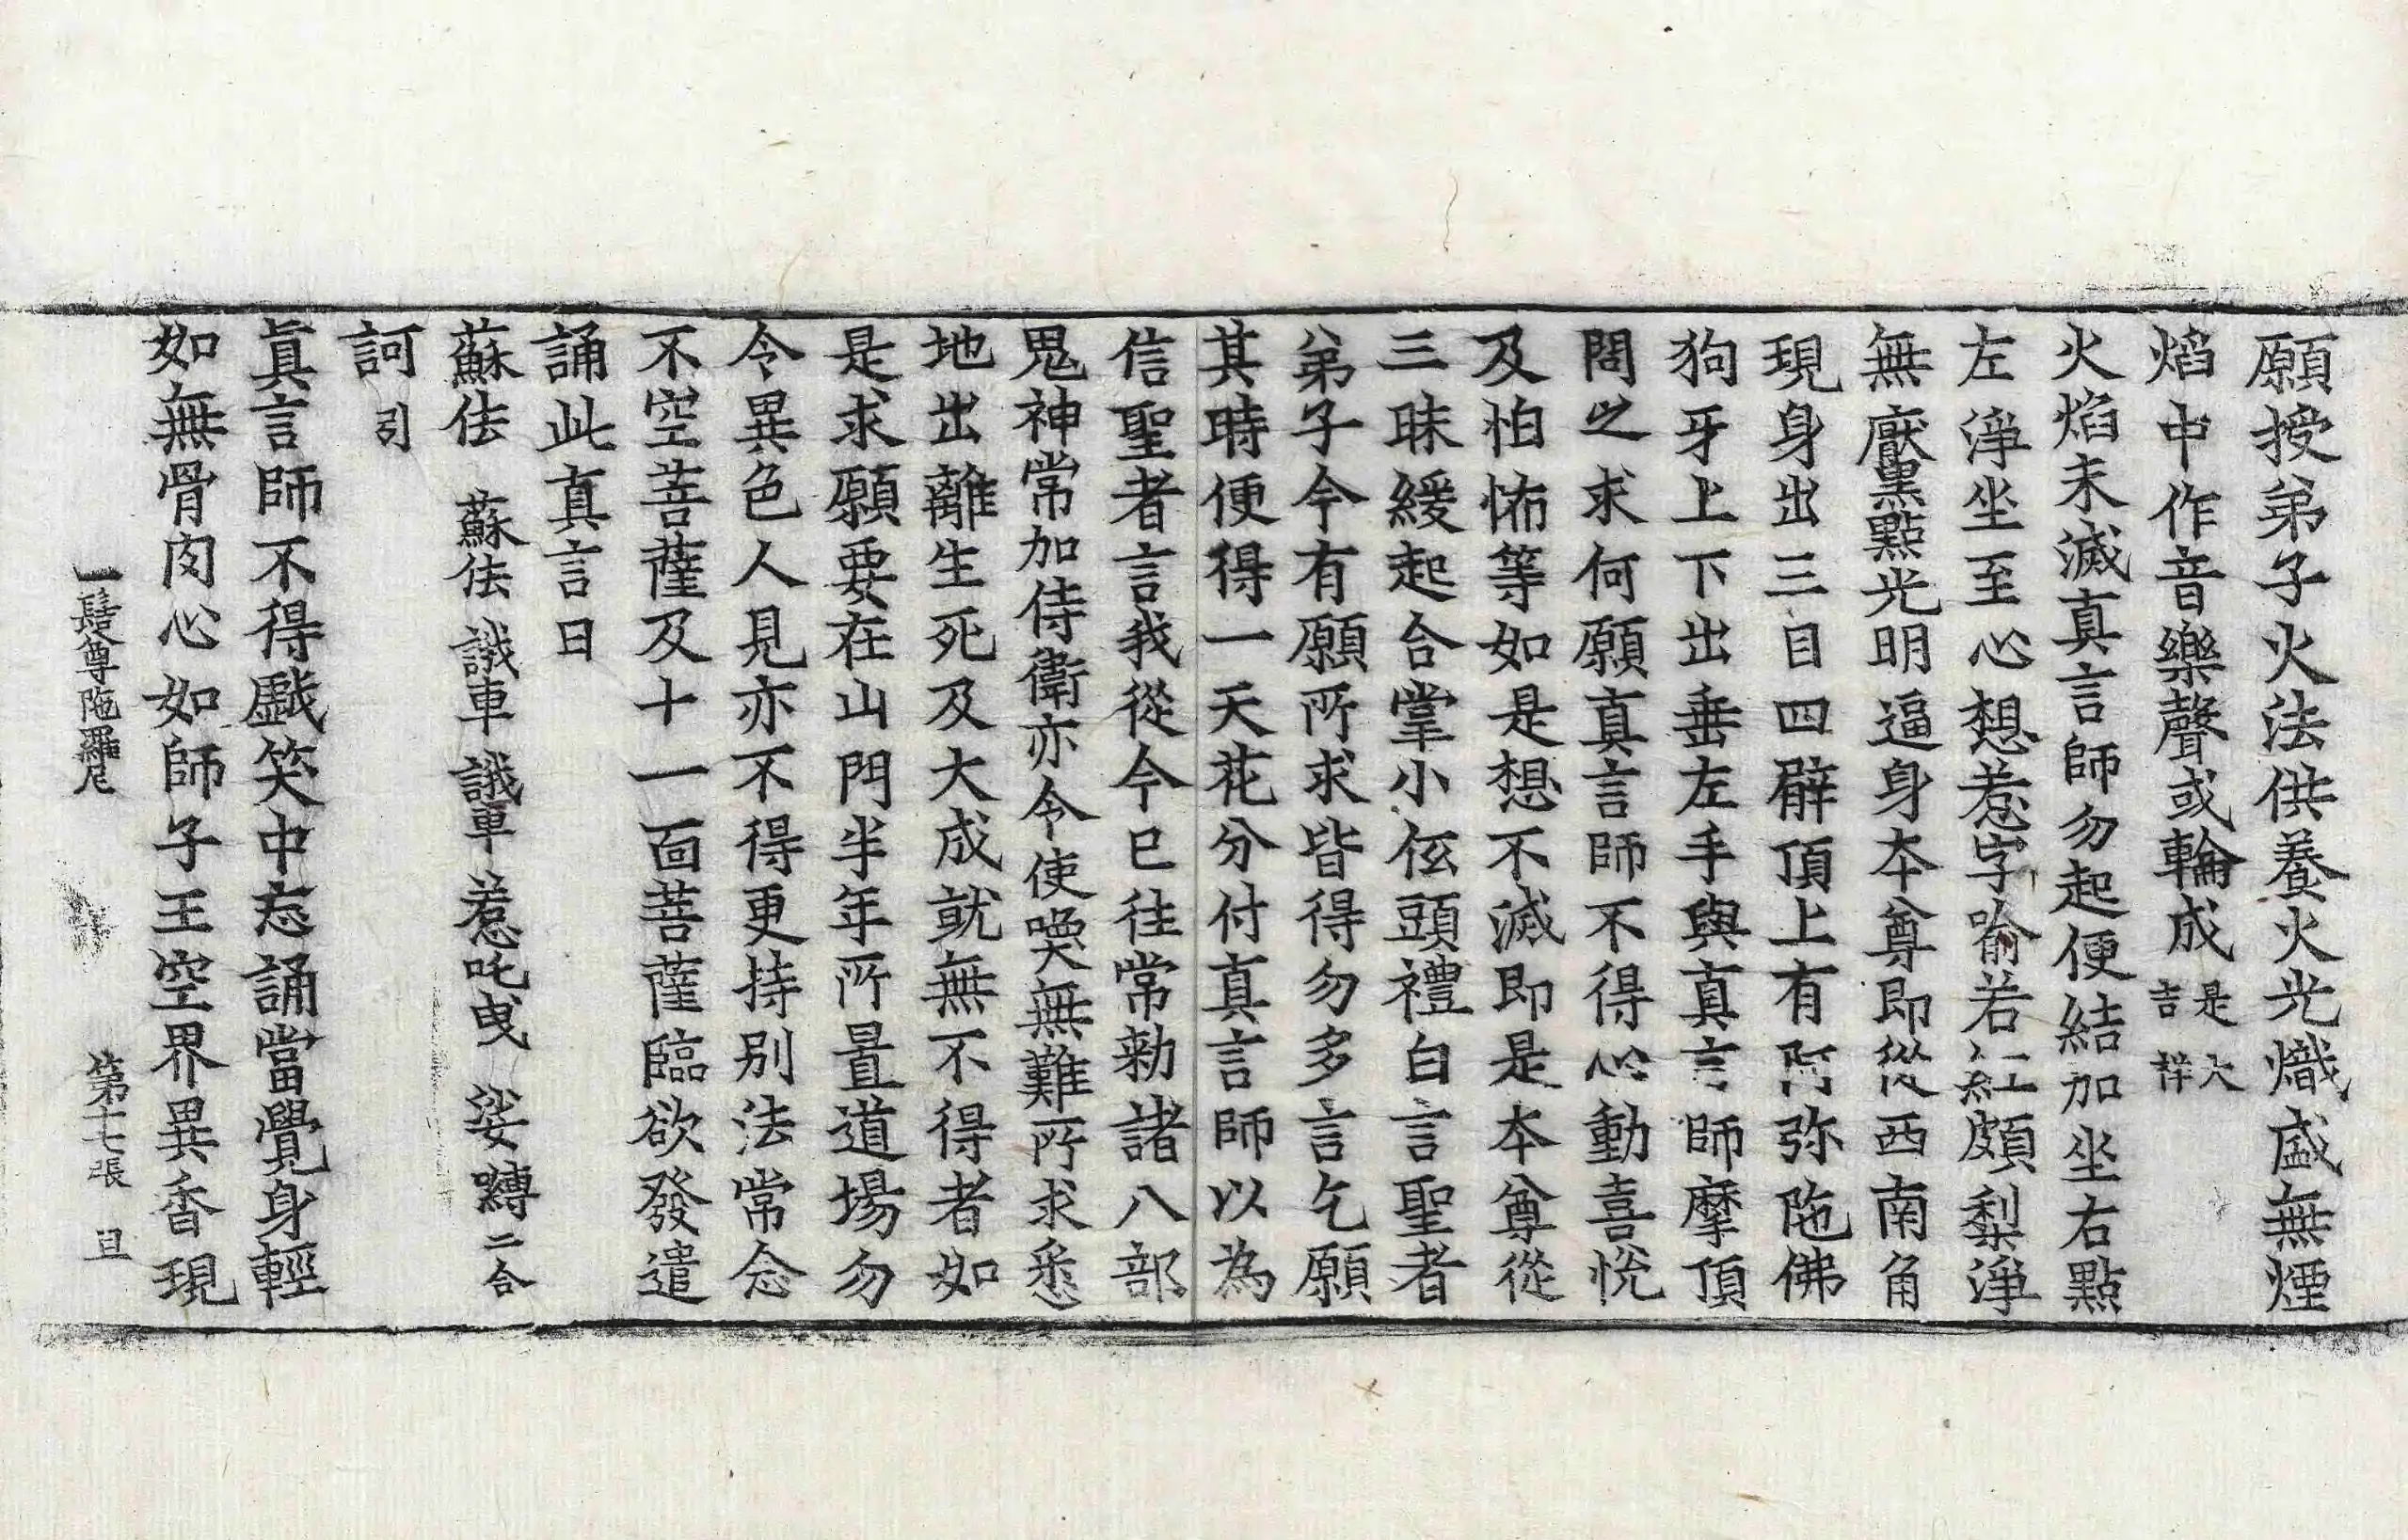 願授弟子火法供養火光熾盛無煙
焰中作音樂聲或輪成是大吉祥
火焰未滅真言師勿起便結加坐右點
左淨坐至心想惹字喻若紅頗梨淨
無厭黑點光明逼身本尊即從西南角
現身出三目四臂頂上有阿弥陁佛
狗牙上下出垂左手與真言師摩頂
閤之求何願真言師不得心動喜悅
及怕怖等如是想不滅即是本尊從
三昧緩起合掌小伭頭禮白言聖者
弟子今有願所求皆得勿多言乞願
其時便得一天花分付真言師以為
信聖者言我從今已往常勑諸八部
鬼神常加侍衛亦令使喚無難所求悉
地出離生死及大成就無不得者如
是求願要在山門半年所置道場勿
令異色人見亦不得更持別法常念
不空菩薩及十一面菩薩臨欲發遣
誦此真言曰
蘇佉 蘇佉 誐車 誐車 惹吒曳 娑嚩二合
訶引
真言師不得戱笑中忘誦當覺身輕
如無骨肉心如師子王空界異香現
一髻尊陁羅尼 第十七張 旦